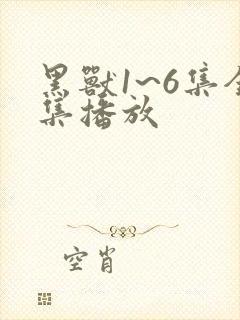 黑獸1~6集全
集播放
空肖